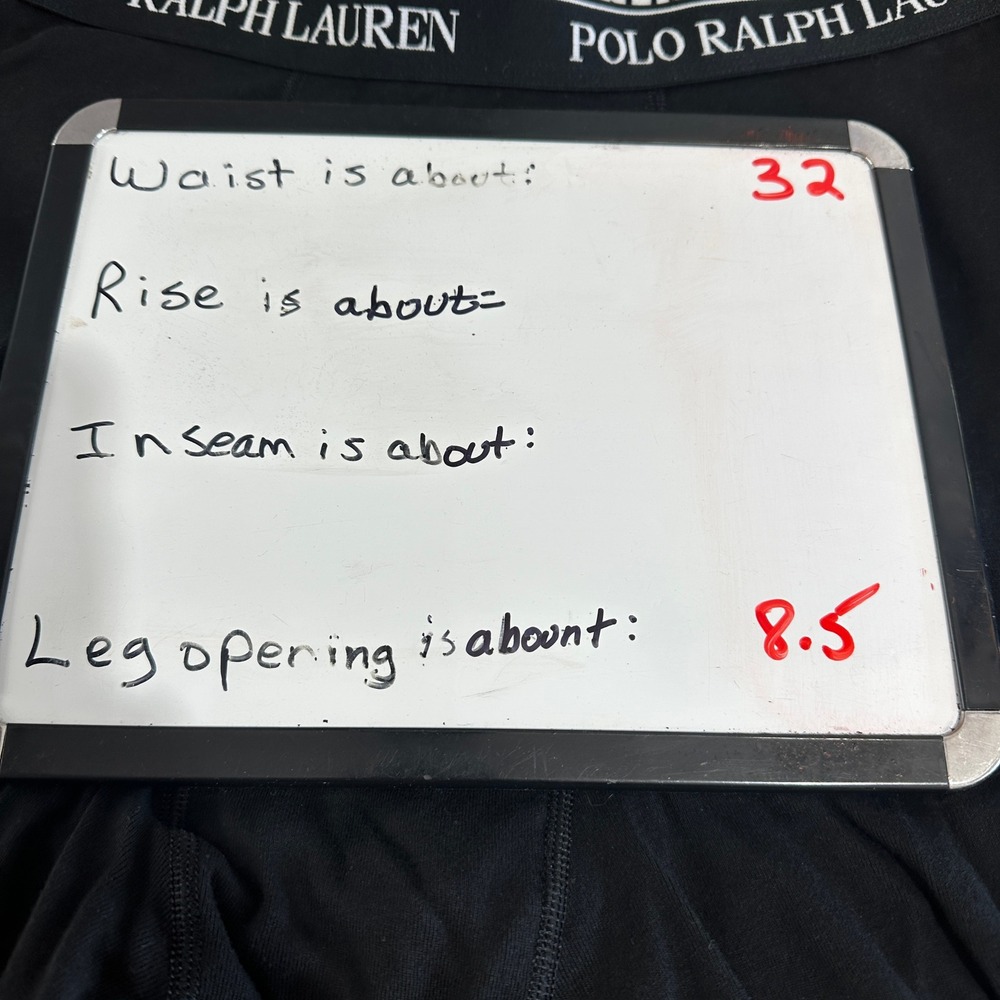 RALPH LAUREN POLO RALPH LAU
Waist is about: 32
Rise is about=
Inseam is about:
Leg opening is abount: 8.5